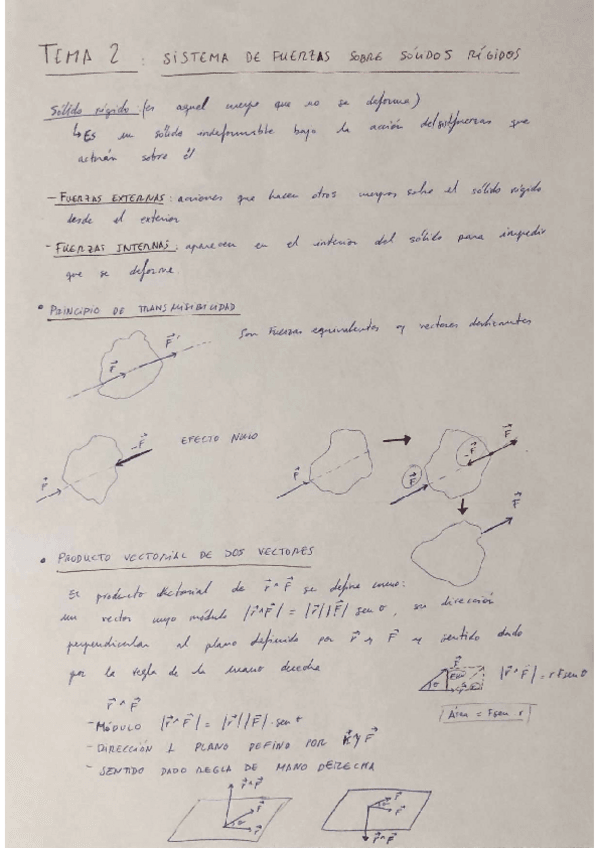 TEMA 2 : SISTEMA DE FUERZAS SOBRE SÓLIDOS RÍGIDOS
Sólido rígido: (es aquel cuerpo que no se deforma)
↳ Es un sólido indeformable bajo la acción de fuerzas que
actúan sobre él
- FUERZAS EXTERNAS: acciones que hacen otros cuerpos sobre el sólido rígido
desde el exterior
- FUERZAS INTERNAS: aparecen en el interior del sólido para impedir
que se deforme.
• PRINCIPIO DE TRANSMISIBILIDAD
Son fuerzas equivalentes y vectores deslizantes
F⃗ F⃗'
F⃗ -F⃗ EFECTO NULO
F⃗ → F⃗ -F⃗ F⃗
F⃗
• PRODUCTO VECTORIAL DE DOS VECTORES
El producto vectorial de r⃗ ^ F⃗ se define como:
un vector cuyo módulo |r⃗^F⃗| = |r⃗||F⃗| sen θ, su dirección
perpendicular al plano definido por r⃗ y F⃗ y sentido dado
por la regla de la mano derecha
F⃗ θ |r⃗^F⃗| = r F sen θ
r⃗ ^ F⃗
- MÓDULO |r⃗^F⃗| = |r⃗||F⃗|·sen θ
Área = F sen r
- DIRECCIÓN ⊥ PLANO DEFINO POR r⃗ y F⃗
- SENTIDO DADO REGLA DE MANO DERECHA
r⃗^F⃗ F⃗ θ r⃗
F⃗ θ r⃗ r⃗^F⃗